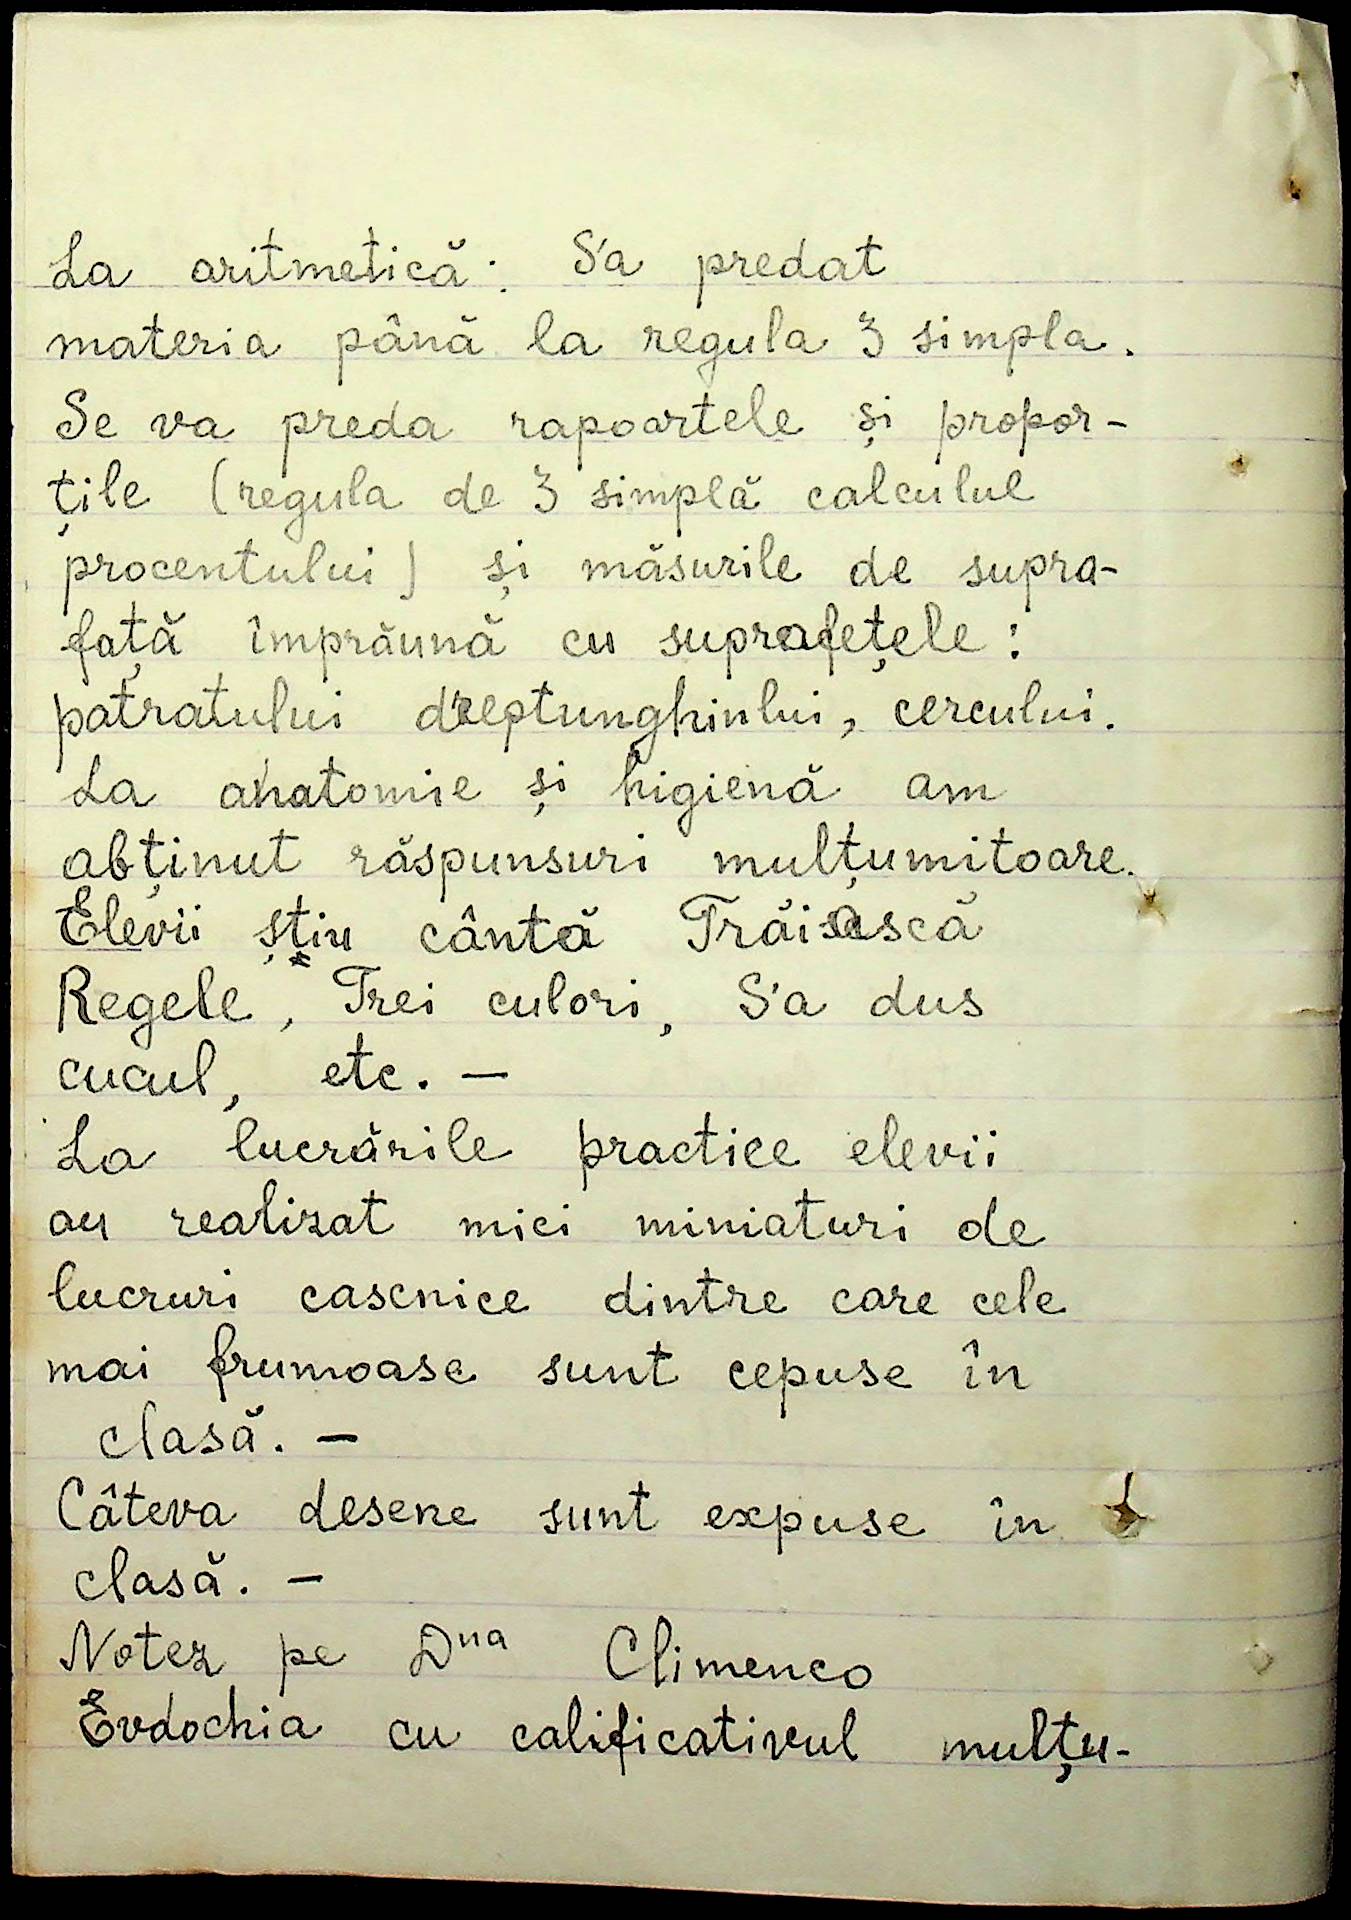 La aritmetică: S'a predat
materia până la regula 3 simpla.
Se va preda rapoartele și propor-
țile (regula de 3 simplă calculul
procentului) și măsurile de supra-
față împrăună cu suprafețele:
patratului dreptunghinlui, cercului.
La anatomie și higienă am
abținut răspunsuri mulțumitoare.
Elevii știu cânta Trăiască
Regele, Trei culori, S'a dus
cucul, etc. —
La lucrările practice elevii
au realizat mici miniaturi de
lucruri casenice dintre care cele
mai frumoase sunt cepuse în
clasă. —
Câteva desene sunt expuse în
clasă. —
Notez pe Dna Climenco
Evdochia cu calificativul mulțu-